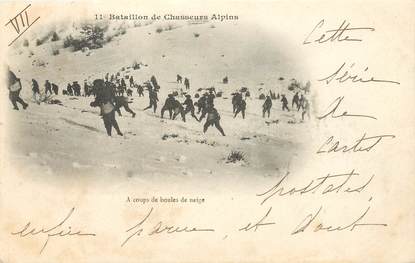 VII
11e Bataillon de Chasseurs Alpins
Cette
Série
de
Cartes
A coups de boules de neige
postales,
enfin parue, et dont